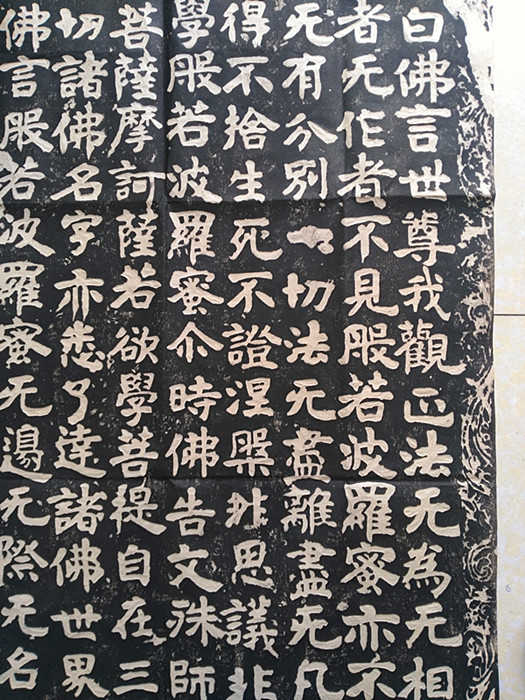 白佛言世尊我觀正法无為无相
者无作者不見般若波羅蜜亦不
无有分別一切法无盡離盡无凡
得不捨生死不證涅槃非思議非
學般若波羅蜜尒時佛告文殊師
菩薩摩訶薩若欲學菩提自在三
切諸佛名字亦悉了達諸佛世界
佛言般若波羅蜜无邊无際无名